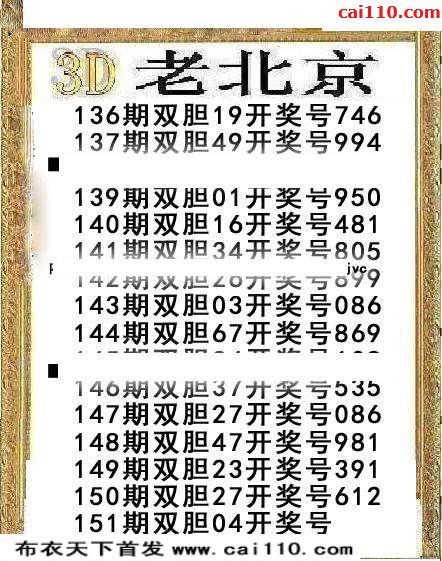 cai110.com
3D 老北京
136期双胆19开奖号746
137期双胆49开奖号994
139期双胆01开奖号950
140期双胆16开奖号481
141期双胆34开奖号805
jyc
142期双胆26开奖号899
143期双胆03开奖号086
144期双胆67开奖号869
146期双胆37开奖号535
147期双胆27开奖号086
148期双胆47开奖号981
149期双胆23开奖号391
150期双胆27开奖号612
151期双胆04开奖号
布衣天下首发 www.cai110.com